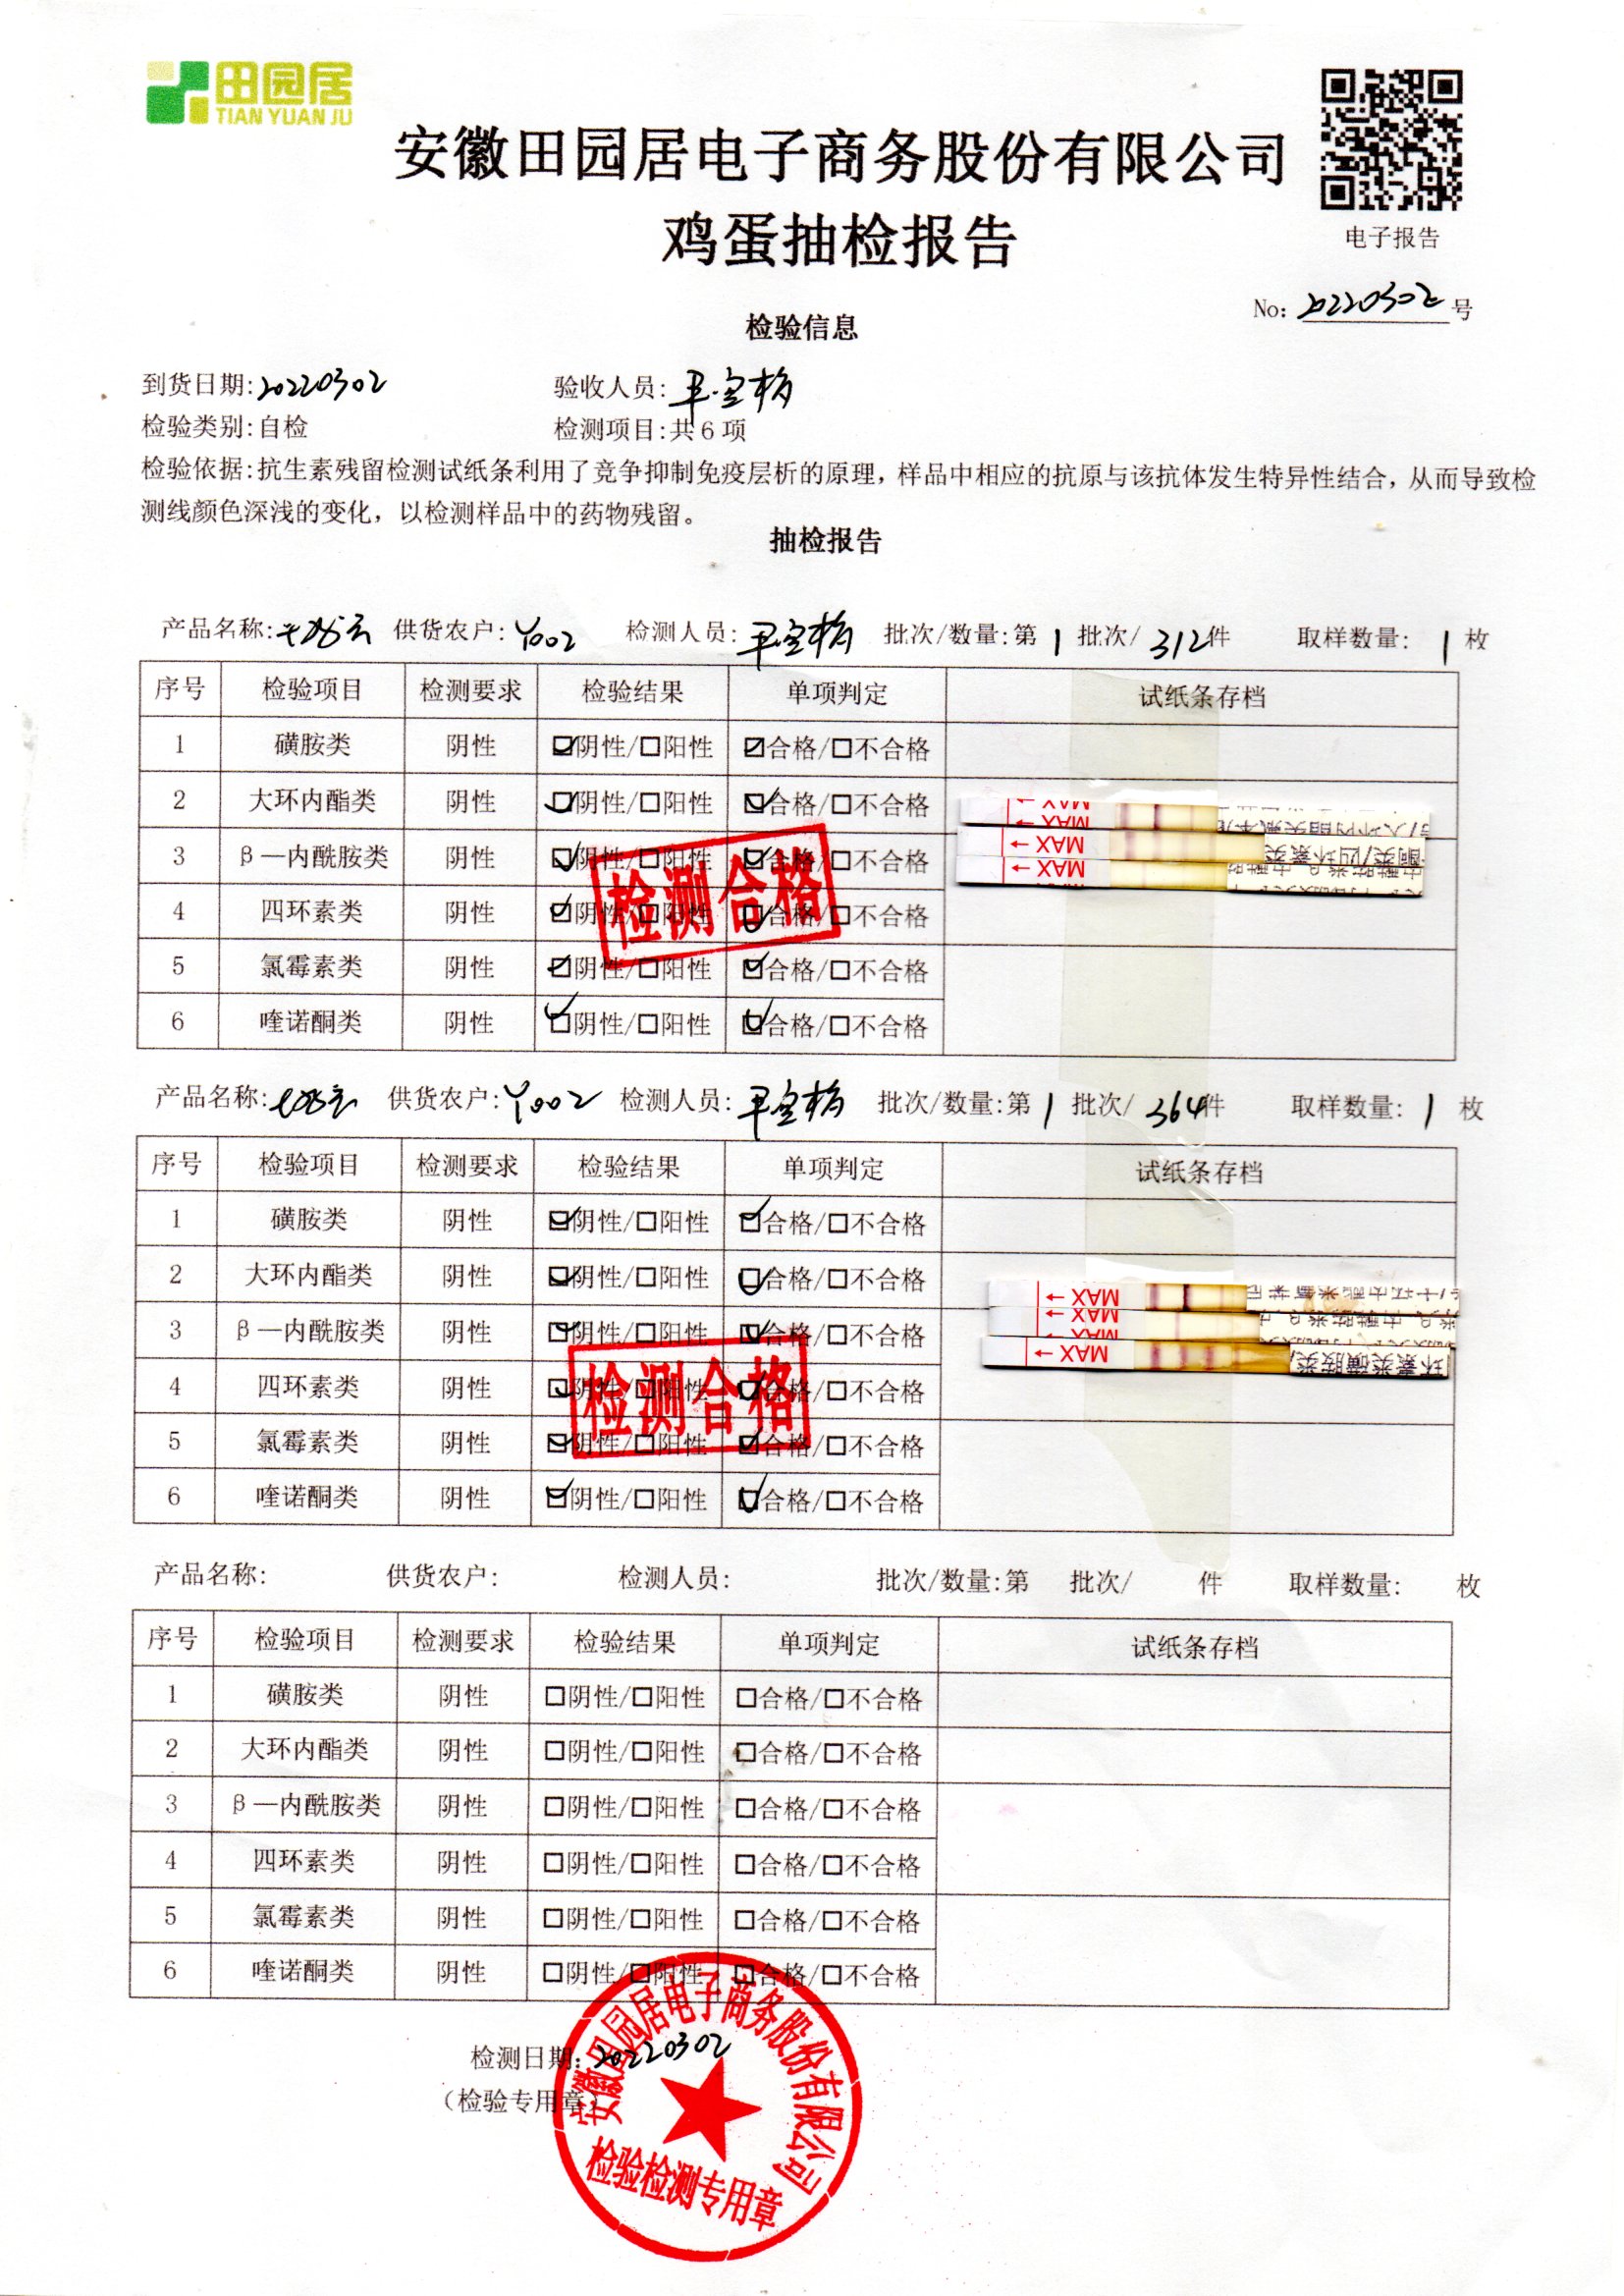 田园居
TIAN YUAN JU
安徽田园居电子商务股份有限公司
鸡蛋抽检报告
电子报告
No: 20220302号
检验信息
到货日期:20220302 验收人员:
检验类别:自检 检测项目:共6项
检验依据:抗生素残留检测试纸条利用了竞争抑制免疫层析的原理，样品中相应的抗原与该抗体发生特异性结合，从而导致检
测线颜色深浅的变化，以检测样品中的药物残留。
抽检报告
产品名称: 供货农户:Y002 检测人员: 批次/数量:第1批次/312件 取样数量:1枚
序号 检验项目 检测要求 检验结果 单项判定 试纸条存档
1 磺胺类 阴性 ☑阴性/□阳性 ☑合格/□不合格
2 大环内酯类 阴性 ☑阴性/□阳性 ☑合格/□不合格
3 β—内酰胺类 阴性 ☑阴性/□阳性 ☑合格/□不合格
4 四环素类 阴性 ☑阴性/□阳性 ☑合格/□不合格
5 氯霉素类 阴性 ☑阴性/□阳性 ☑合格/□不合格
6 喹诺酮类 阴性 ☑阴性/□阳性 ☑合格/□不合格
检测合格
← MAX
← MAX
← MAX
产品名称: 供货农户:Y002 检测人员: 批次/数量:第1批次/364件 取样数量:1枚
序号 检验项目 检测要求 检验结果 单项判定 试纸条存档
1 磺胺类 阴性 ☑阴性/□阳性 ☑合格/□不合格
2 大环内酯类 阴性 ☑阴性/□阳性 ☑合格/□不合格
3 β—内酰胺类 阴性 ☑阴性/□阳性 ☑合格/□不合格
4 四环素类 阴性 ☑阴性/□阳性 ☑合格/□不合格
5 氯霉素类 阴性 ☑阴性/□阳性 ☑合格/□不合格
6 喹诺酮类 阴性 ☑阴性/□阳性 ☑合格/□不合格
检测合格
← MAX
← MAX
← MAX
环素类磺胺类
产品名称: 供货农户: 检测人员: 批次/数量:第 批次/ 件 取样数量: 枚
序号 检验项目 检测要求 检验结果 单项判定 试纸条存档
1 磺胺类 阴性 □阴性/□阳性 □合格/□不合格
2 大环内酯类 阴性 □阴性/□阳性 □合格/□不合格
3 β—内酰胺类 阴性 □阴性/□阳性 □合格/□不合格
4 四环素类 阴性 □阴性/□阳性 □合格/□不合格
5 氯霉素类 阴性 □阴性/□阳性 □合格/□不合格
6 喹诺酮类 阴性 □阴性/□阳性 □合格/□不合格
检测日期:20220302
（检验专用章）
安徽田园居电子商务股份有限公司
检验检测专用章